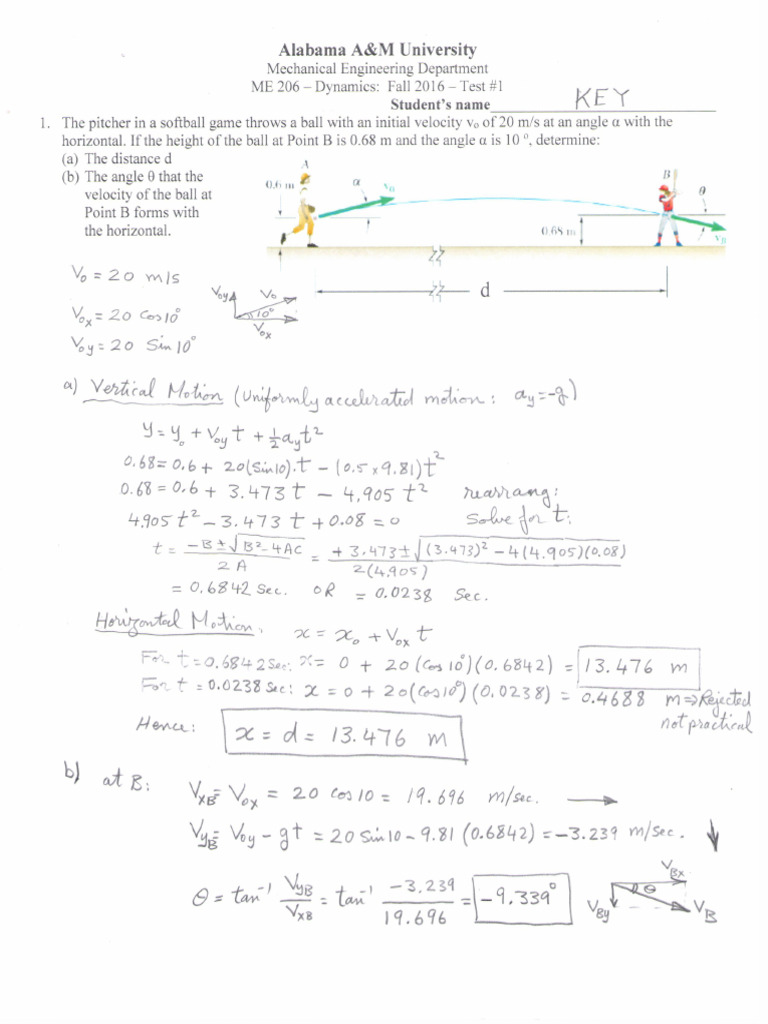 Alabama A&M University
Mechanical Engineering Department
ME 206 – Dynamics: Fall 2016 – Test #1
Student's name KEY
1. The pitcher in a softball game throws a ball with an initial velocity vₒ of 20 m/s at an angle α with the
horizontal. If the height of the ball at Point B is 0.68 m and the angle α is 10 °, determine:
(a) The distance d
(b) The angle θ that the
velocity of the ball at
Point B forms with
the horizontal.
A
0.6 m
α
v₀
B
θ
0.68 m
vB
d
Vo = 20 m/s
Vox = 20 Cos 10°
Voy = 20 Sin 10°
Voy
Vo
10°
Vox
a) Vertical Motion (Uniformly accelerated motion: ay = -g)
y = yo + Voy t + ½ ay t²
0.68 = 0.6 + 20(Sin 10).t - (0.5 x 9.81) t²
0.68 = 0.6 + 3.473 t - 4.905 t² rearrang:
4.905 t² - 3.473 t + 0.08 = 0 Solve for t:
t = (-B ± √(B² - 4AC)) / 2A = (+3.473 ± √((3.473)² - 4(4.905)(0.08))) / 2(4.905)
= 0.6842 Sec. OR = 0.0238 Sec.
Horizontal Motion: x = xo + Vox t
For t = 0.6842 Sec: x = 0 + 20 (Cos 10°)(0.6842) = 13.476 m
For t = 0.0238 Sec: x = 0 + 20(Cos 10°)(0.0238) = 0.4688 m ⇒ Rejected
not practical
Hence: x = d = 13.476 m
b) at B: VxB = Vox = 20 cos 10 = 19.696 m/sec. →
VyB = Voy - gt = 20 Sin 10 - 9.81 (0.6842) = -3.239 m/sec. ↓
θ = tan⁻¹ VyB / VxB = tan⁻¹ -3.239 / 19.696 = -9.339°
VBx
θ
VBy
VB